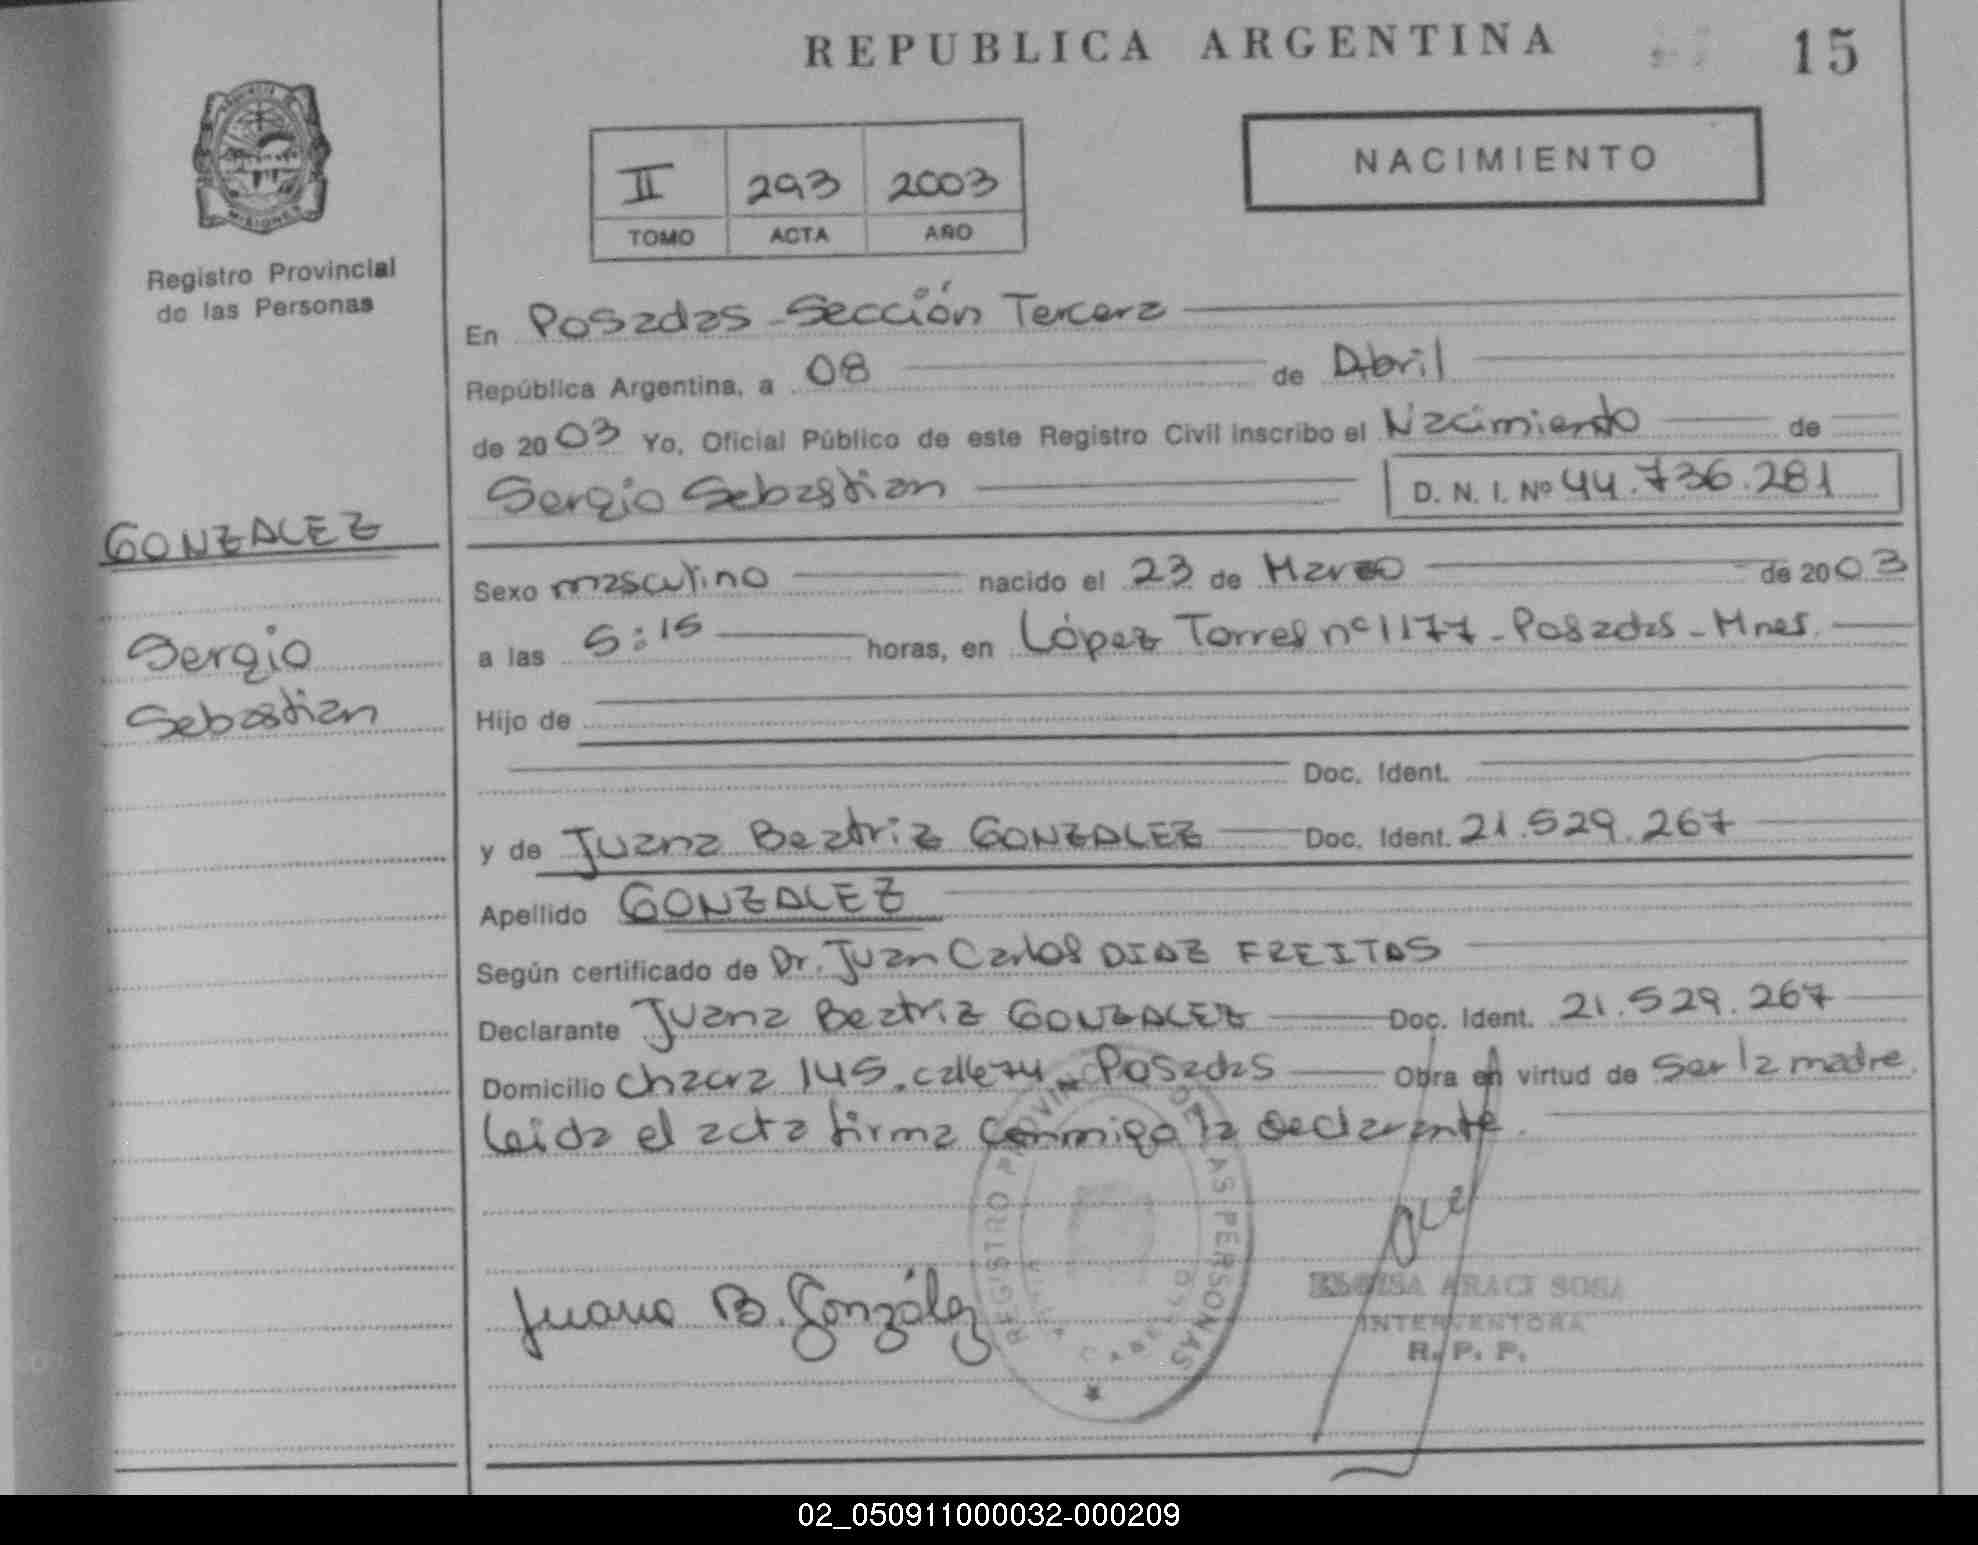 REPUBLICA ARGENTINA
15
PROVINCIA DE
MISIONES
Registro Provincial
de las Personas
II 293 2003
TOMO ACTA AÑO
NACIMIENTO
En Posadas - Sección Tercera
República Argentina, a 08 de Abril
de 2003 Yo, Oficial Público de este Registro Civil inscribo el Nacimiento de
Sergio Sebastian D. N. I. Nº 44.736.281
GONZALEZ
Sergio
Sebastian
Sexo masculino nacido el 23 de Marzo de 2003
a las 5:15 horas, en López Torres nº 1177 - Posadas - Mnes.
Hijo de
Doc. Ident.
y de Juana Beatriz GONZALEZ Doc. Ident. 21.529.267
Apellido GONZALEZ
Según certificado de Dr. Juan Carlos DIAZ FREITAS
Declarante Juana Beatriz GONZALEZ Doc. Ident. 21.529.267
Domicilio chacra 145. calle 74 Posadas Obra en virtud de ser la madre.
Leida el acta firma conmigo la declarante.
Juana B. González
REGISTRO PROVIN DE LAS PERSONAS
ELOISA ARACI SOSA
INTERVENTORA
R. P. P.
02_050911000032-000209